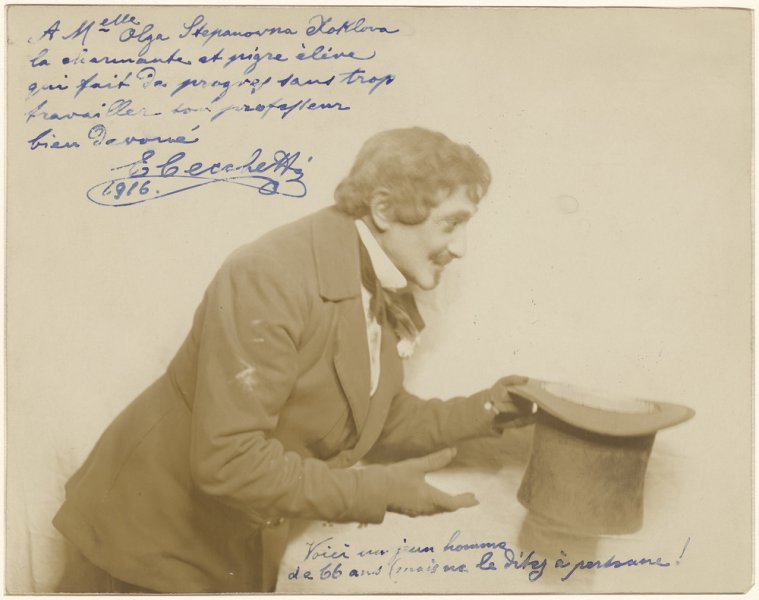 A Melle Olga Stepanovna Koklova
la charmante et pigre élève
qui fait de progres sans trop
travailler son professeur
bien devoué
E Cecchetti
1916.
Voici un jeun homme
de 66 ans (mais ne le ditez à persone!